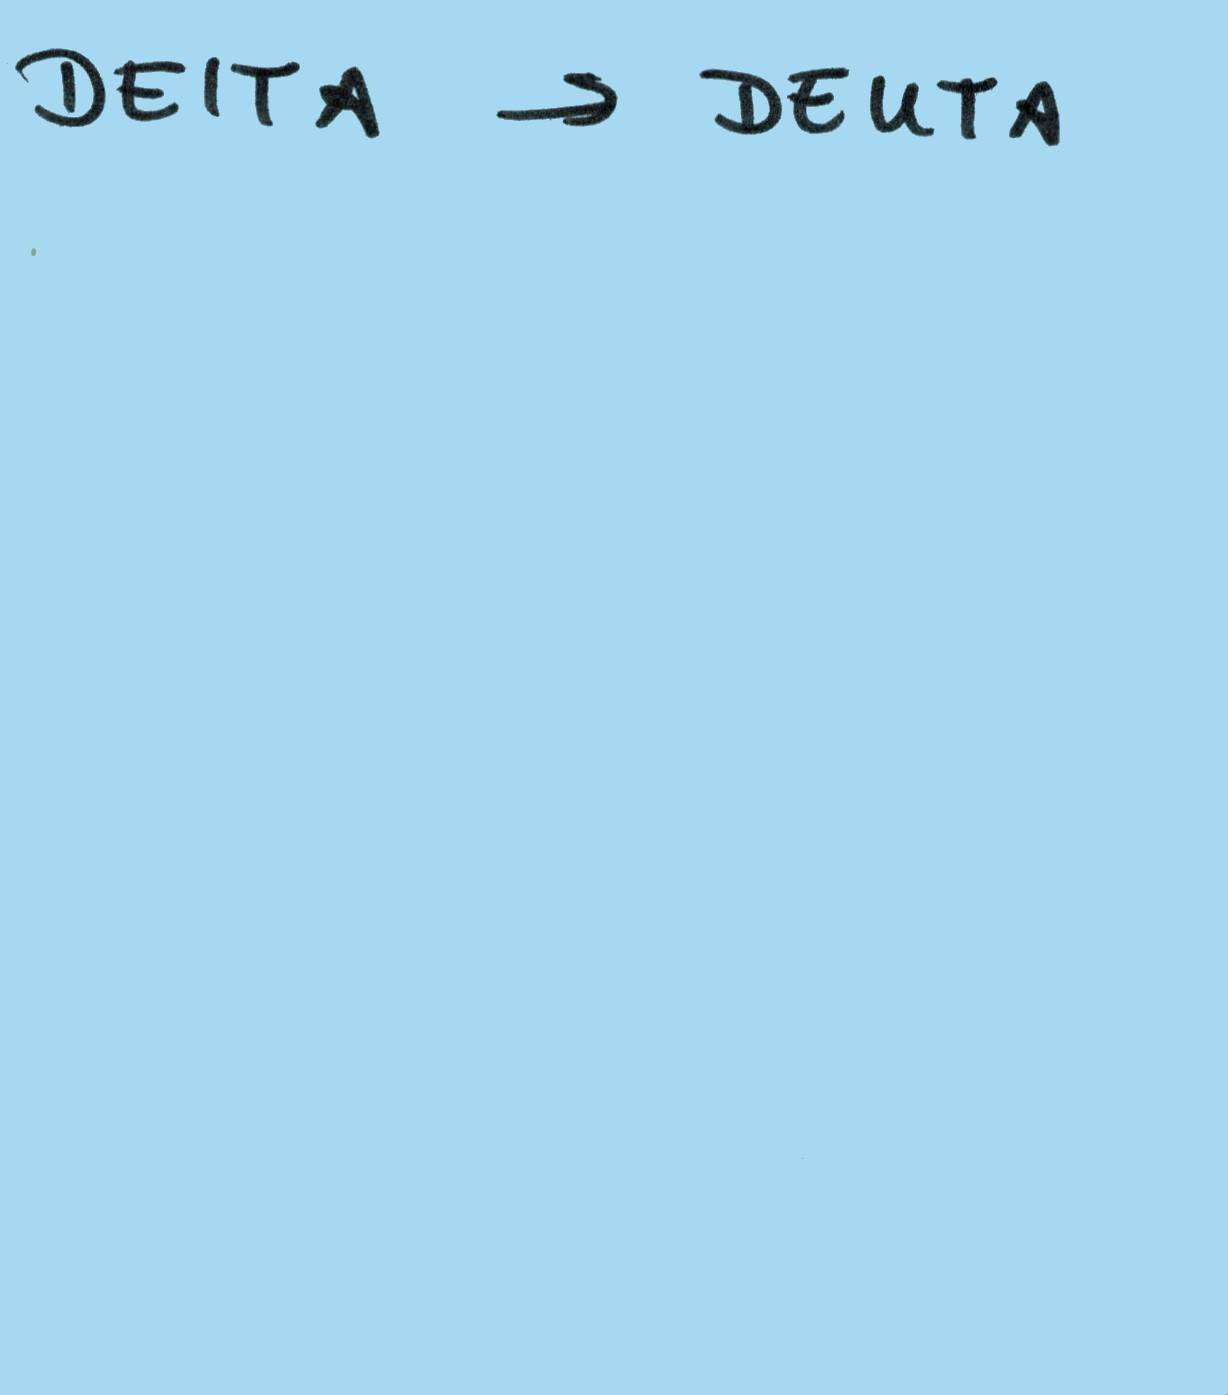 DEITA → DEUTA